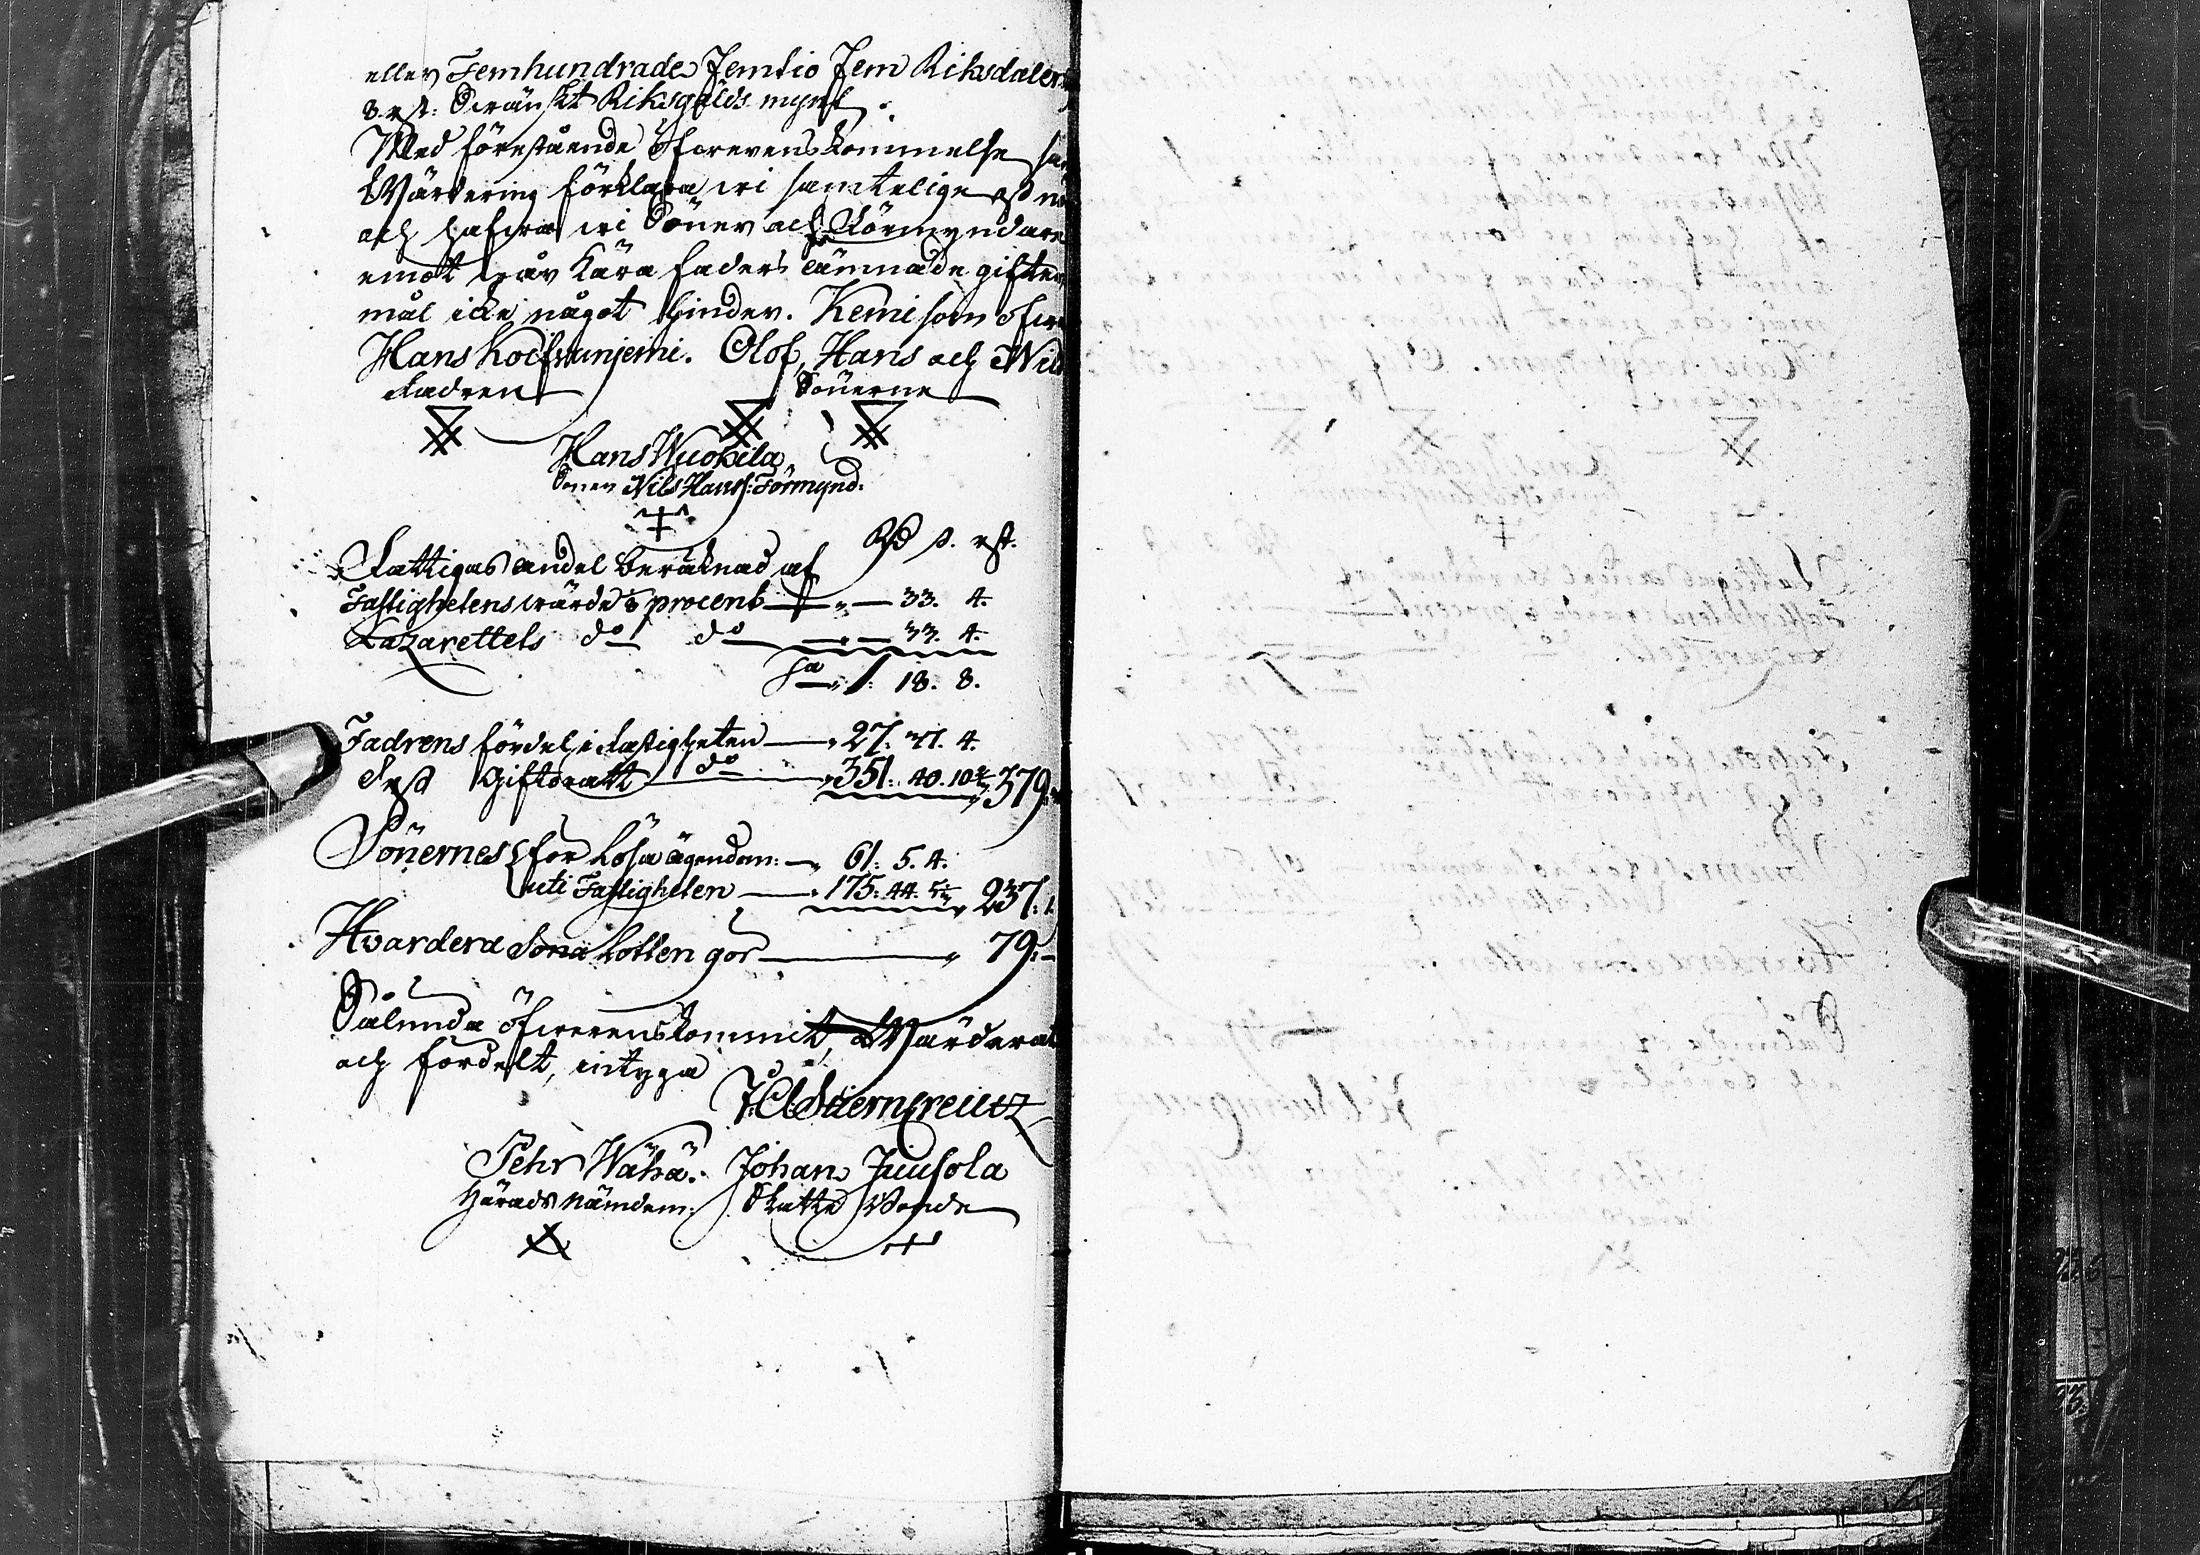 eller Femhundrade Femtio Fem Riksdaler
8. rst: Swänskt Riksgälds mynt.
Med förestående öfwerenskommelse
Wärdering förklara wi samtelige oss
och hafwa wi Söner och Förmyndare
emot wår kära faders ämnade gifter
mål icke något hinder. Kemi som ofwa
Hans Koifwunjemi. Olof, Hans och Nils
Fadren Sönerne
Hans Wuokila
Sonen Nils Hanss: Förmynd:
Rd s. rst.
Fattigas andel beräknad af
Fastighetens wärde procent — " — 33. 4.
Lazarettets do do — " — 33. 4.
Sa " 1: 18. 8.
Fadrens fördel i Fastigheten — " 27: 37. 4.
Giftorätt do — " 351: 40. 10 " 379:
Sönernes för Lösa ägendom: — " 61: 5. 4.
uti Fastigheten — " 175: 44. " 237: 1.
Hvardera Sona Lotten gör — " 79: —
Sålunda öfwerenskommit, Wärderat
och fördelt, intyga
Stierncreutz
Pehr Wähä. Johan Juusola
Härads Nämdem: Skatte Bonde